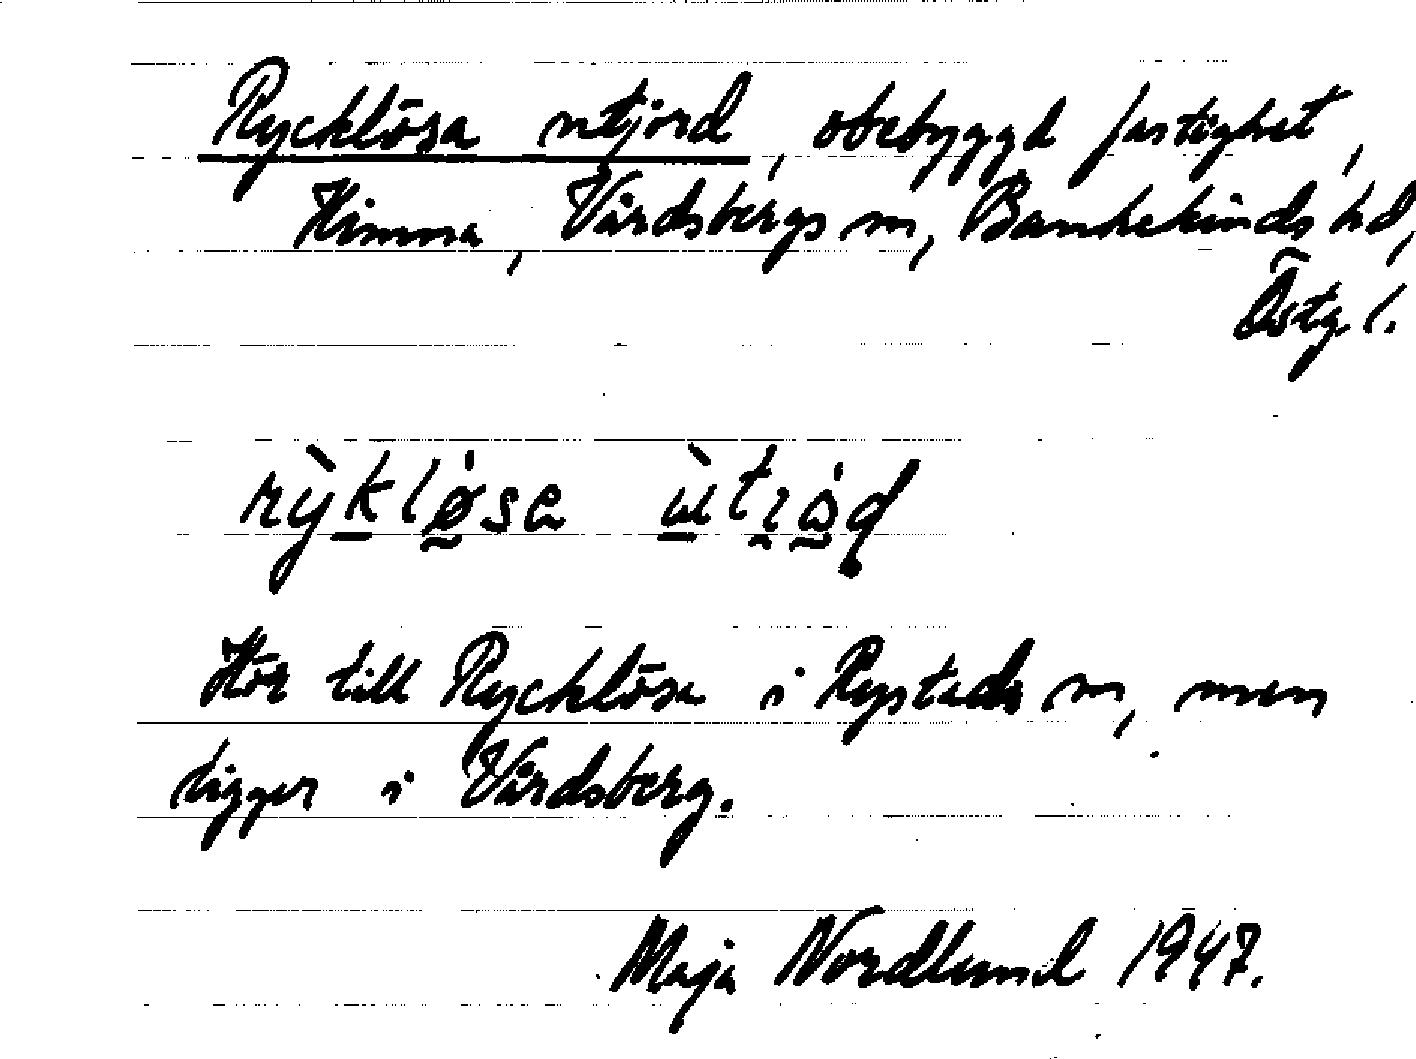 Rycklösa utjord, obebyggd fastighet,
Himna, Vårdsbergs sn, Bankekinds hd,
Östg l.
rỳkløsa ùtjọḍ
Hör till Rycklösa i Rystads sn, men
ligger i Vårdsberg.
Maja Nordlund 1947.